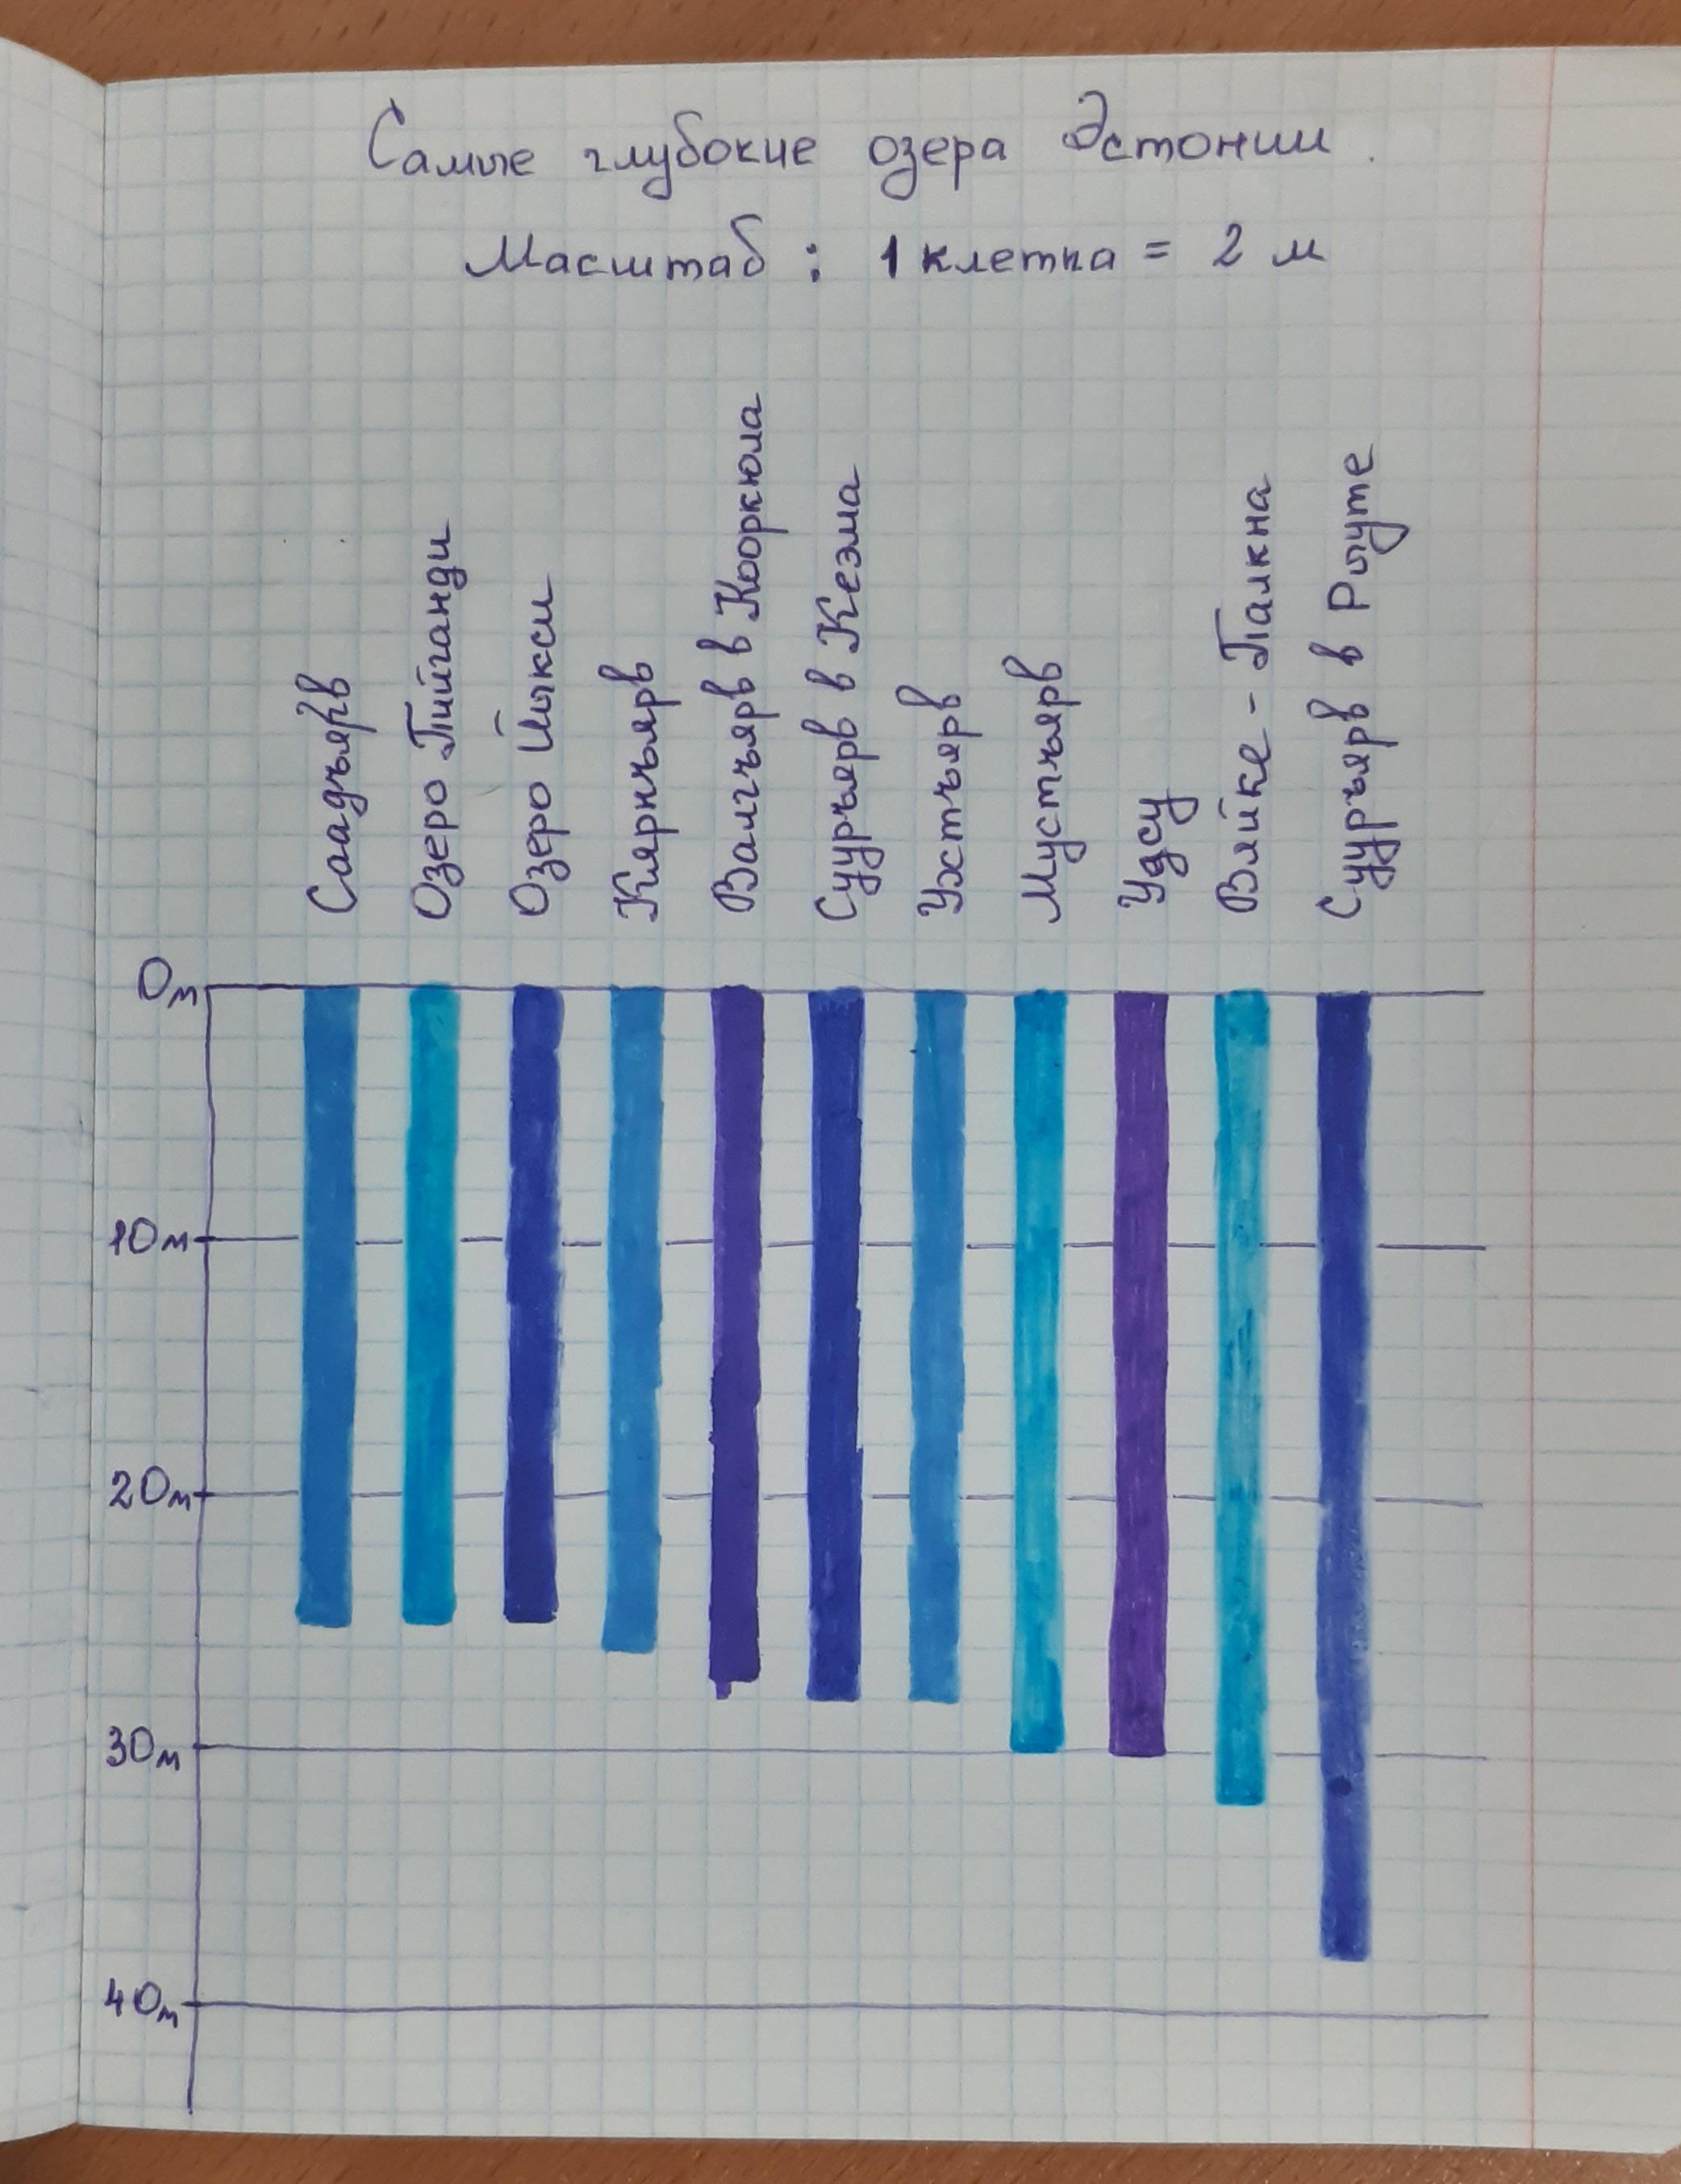 Самые глубокие озера Эстонии.
Масштаб: 1 клетка = 2 м
Саадъярв
Озеро Пийганди
Озеро Йыкси
Кярнъярв
Валгъярв в Кооркюла
Сууръярв в Кезма
Ухтъярв
Мустъярв
Удсу
Вяйке-Палкна
Сууръярв в Рыуте
0м
10м
20м
30м
40м